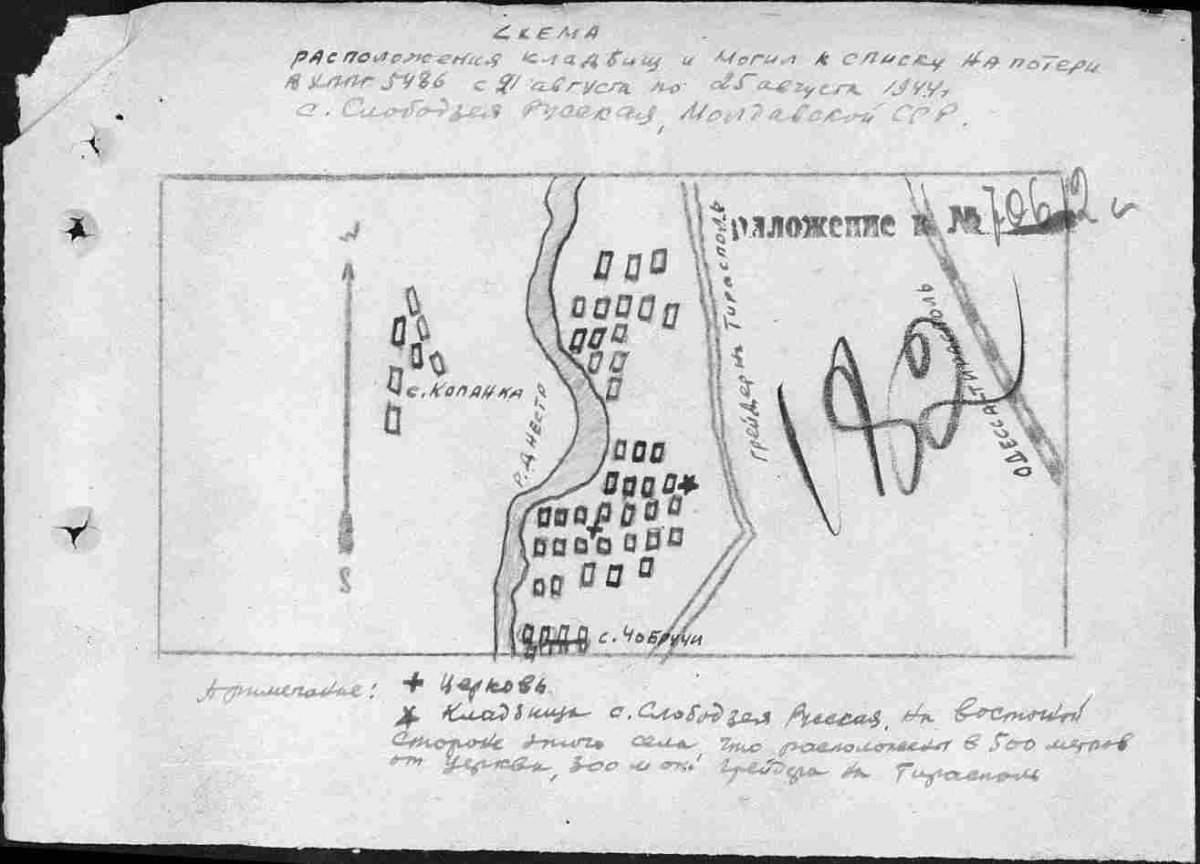 СХЕМА
расположения кладвищ и могил к списку на потери
в ХППГ 5486 с 21 августа по 25 августа 1944г
с. Слободзея Русская, Молдавской ССР.
риложение к № 70612 с
N
182
с. Копанка
Р. Днестр
Грейдер на Тирасполь
Одесса-Тирасполь
S
с. Чобручи
Примечание: + Церковь
Кладбища с. Слободзея Русская, на восточной
стороне этого села, что расположен в 500 метров
от церкви, 300 м от грейдера на Тирасполь